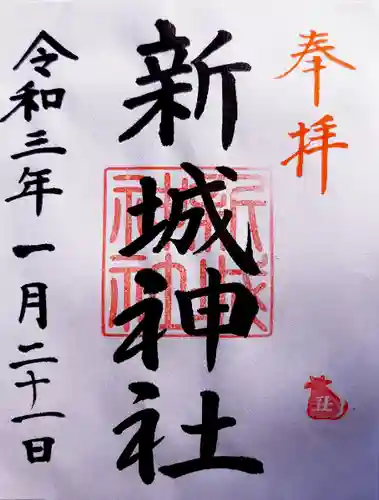 奉拝
新城神社
新城神社
令和三年一月二十一日
丑